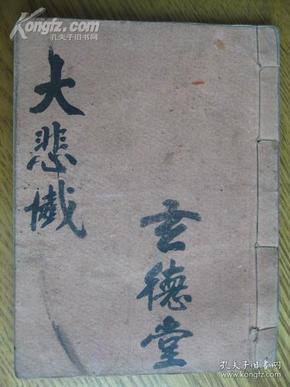 孔夫子旧书网
大悲懺
玄德堂
孔夫子旧书网